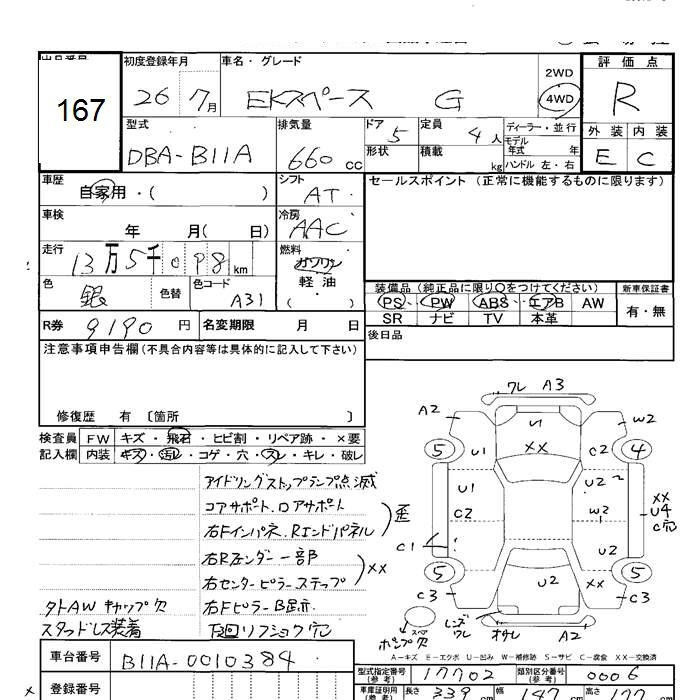 初度登録年月 車名・グレード 評価点
167
26年 7月 EKスペース G 2WD 4WD R
型式 排気量 ドア 5 定員 4人 ディーラー・並行 外装 内装
DBA-B11A 660cc 形状 積載 kg モデル年式 年 E C
ハンドル 左・右
車歴 自家用・( ) シフト AT セールスポイント (正常に機能するものに限ります)
車検 年 月( 日) 冷房 AAC
走行 13万5千098km 燃料 ガソリン
色 銀 色替 色コード A31 軽油 ( )
装備品 (純正品に限り○をつけてください) 新車保証書
PS・PW ABS・エアB AW 有・無
SR ナビ TV 本革
R券 9190円 名変期限 月 日 後日品
注意事項申告欄(不具合内容等は具体的に記入して下さい)
修復歴 有 〔箇所 〕
検査員 FW キズ・飛石・ヒビ割・リペア跡・×要
記入欄 内装 キズ・汚レ・コゲ・穴・スレ・キレ・破レ
アイドリングストップランプ点滅
コアサポート、ロアサポート
右Fインパネ、Rエンドパネル
歪
右Rフェンダー一部
右センターピラー ステップ
××
タトAW キャップ欠 右Fピラー
スタッドレス装着 下廻リフショク穴
ワレ A3
A2 U1 W2
5 U1 ×× C2 4
U1 U2
C2 W2 ×× U4 C穴
C1 U2
5 U2 ×× 5
C3 C3
スペア レンズワレ オサレ A2
A-キズ E-エクボ U-凹み W-補修跡 S-サビ C-腐食 XX-交換済
車台番号 B11A-0010384
型式指定番号(参考) 17702 類別区分番号(参考) 0006
登録番号
車庫証明用 長さ 339cm 幅 147 高さ 177